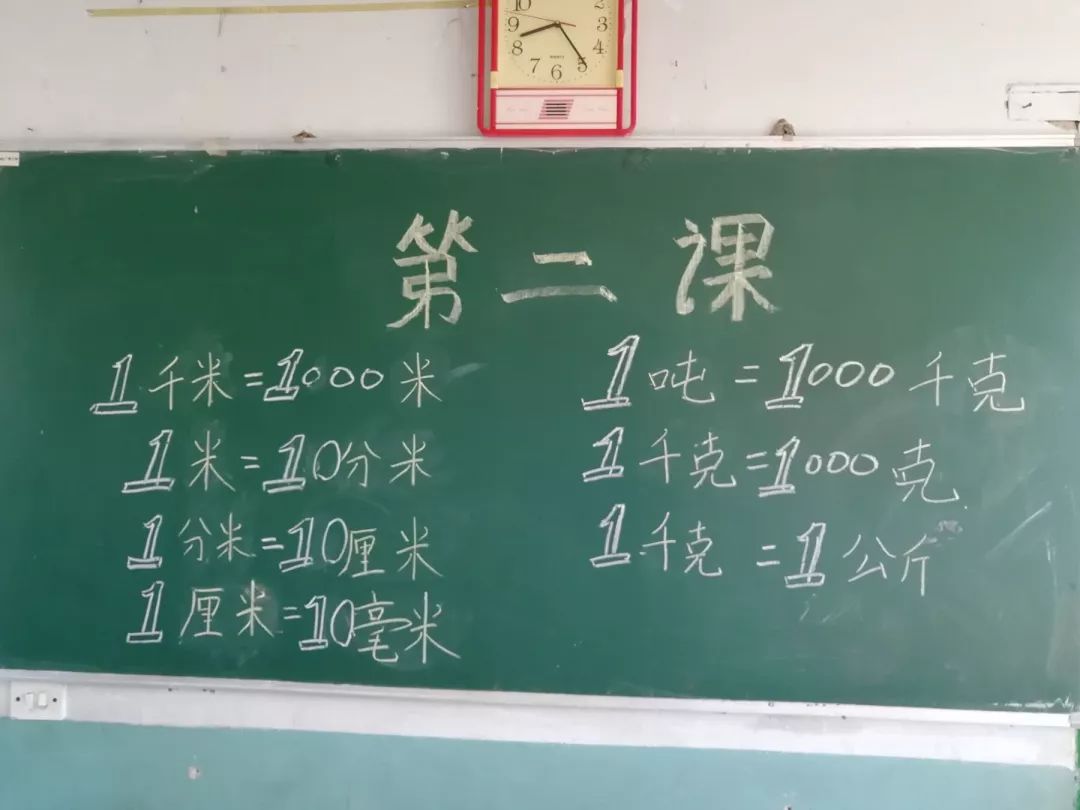 10 2
9 3
8 4
7 6 5
第二课
1千米=1000米
1米=10分米
1分米=10厘米
1厘米=10毫米
1吨=1000千克
1千克=1000克
1千克=1公斤